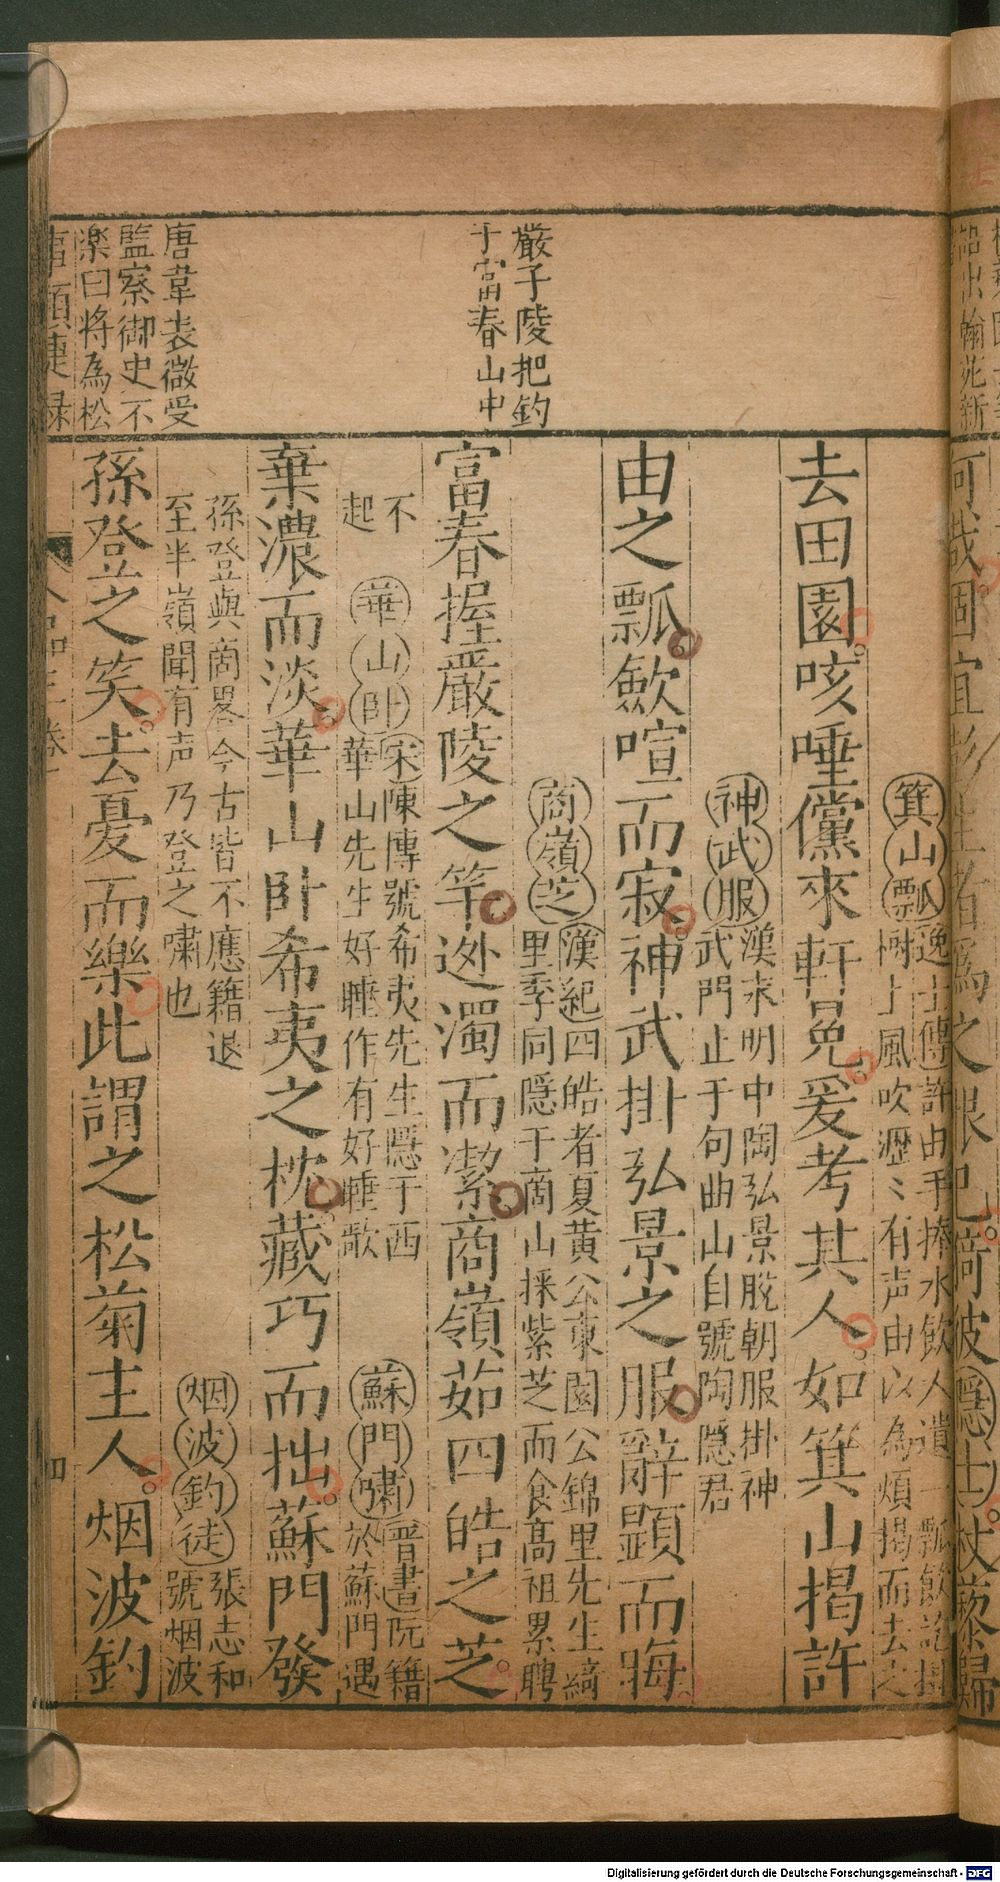 嚴子陵把釣
于富春山中
唐韋表微受
監察御史不
楽曰將為松
箕山瓢
逸士傳許由手捧水飲人遺一瓢飲訖掛
樹上風吹瀝〻有声由以為煩揭而去之
去田園咳唾儻來軒冕爰考其人如箕山揭許
神武服
漢末明中陶弘景脫朝服掛神
武門止于句曲山自號陶隱君
由之瓢歛喧而寂神武掛弘景之服辭顕而晦
商嶺芝
漢紀四皓者夏黄公東園公錦里先生綺
里季同隱于商山採紫芝而食髙祖累聘
不
起
富春握嚴陵之竿迯濁而潔商嶺茹四皓之芝
華山卧
宋陳傳號希夷先生隱于西
華山先生好睡作有好睡歌
蘇門嘯
晋書阮籍
於蘇門遇
棄濃而淡華山卧希夷之枕藏巧而拙蘇門發
孫登與商畧今古皆不應籍退
至半嶺聞有声乃登之嘯也
烟波釣徒
張志和
號烟波
孫登之笑去憂而樂此謂之松菊主人烟波釣
四
Digitalisierung gefördert durch die Deutsche Forschungsgemeinschaft - DFG